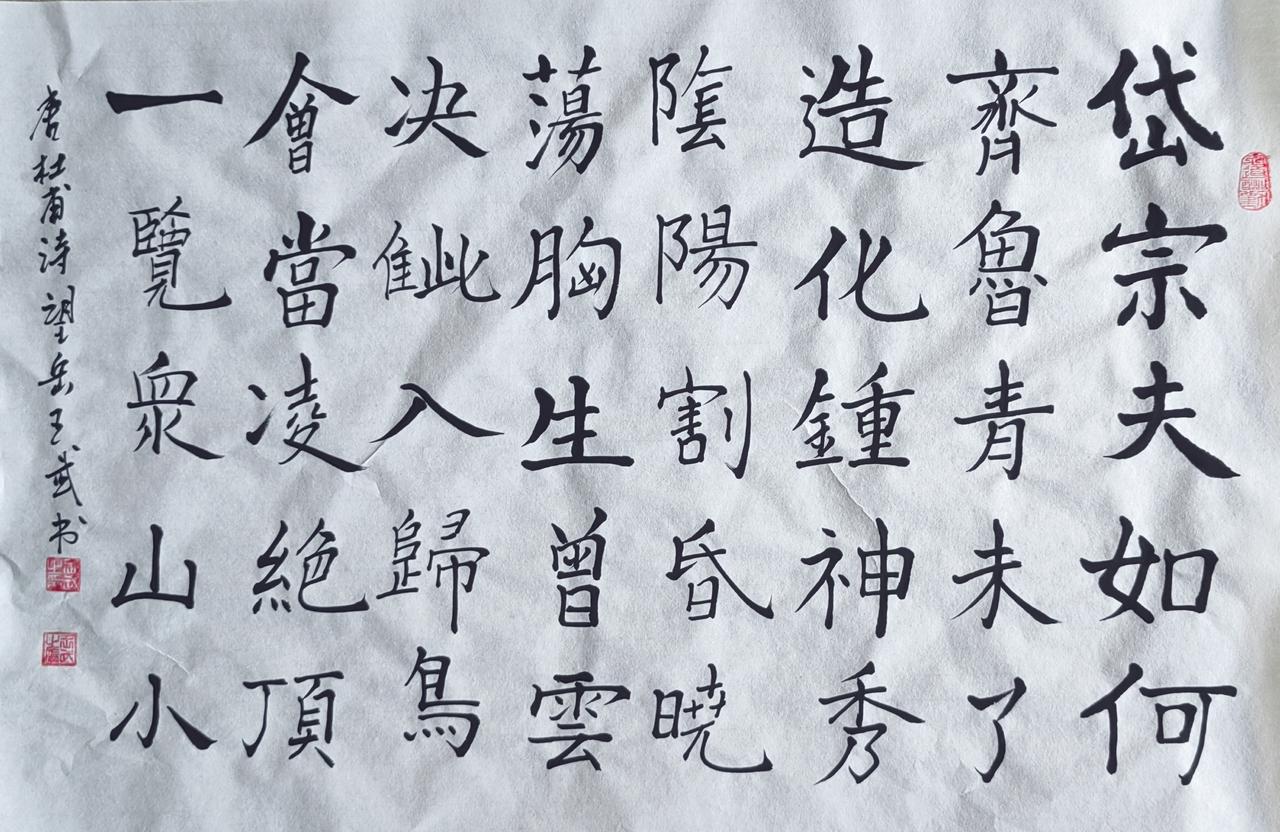 岱宗夫如何
齊魯青未了
造化鍾神秀
隂陽割昏曉
蕩胸生曾雲
决入歸鳥
會當凌絶頂
一覽衆山小
唐杜甫诗望岳王武书